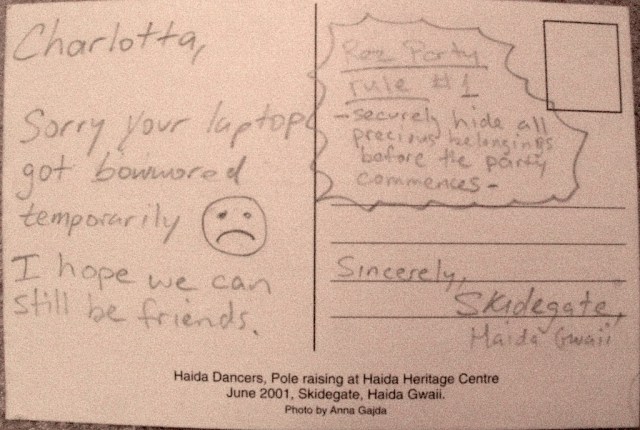 Charlotta,
Sorry your laptop
got bowwored
temporarily
I hope we can
still be friends.
Rez Party
rule #1
-securely hide all
precious belongings
before the party
commences-
Sincerely,
Skidegate,
Haida Gwaii
Haida Dancers, Pole raising at Haida Heritage Centre
June 2001, Skidegate, Haida Gwaii.
Photo by Anna Gajda